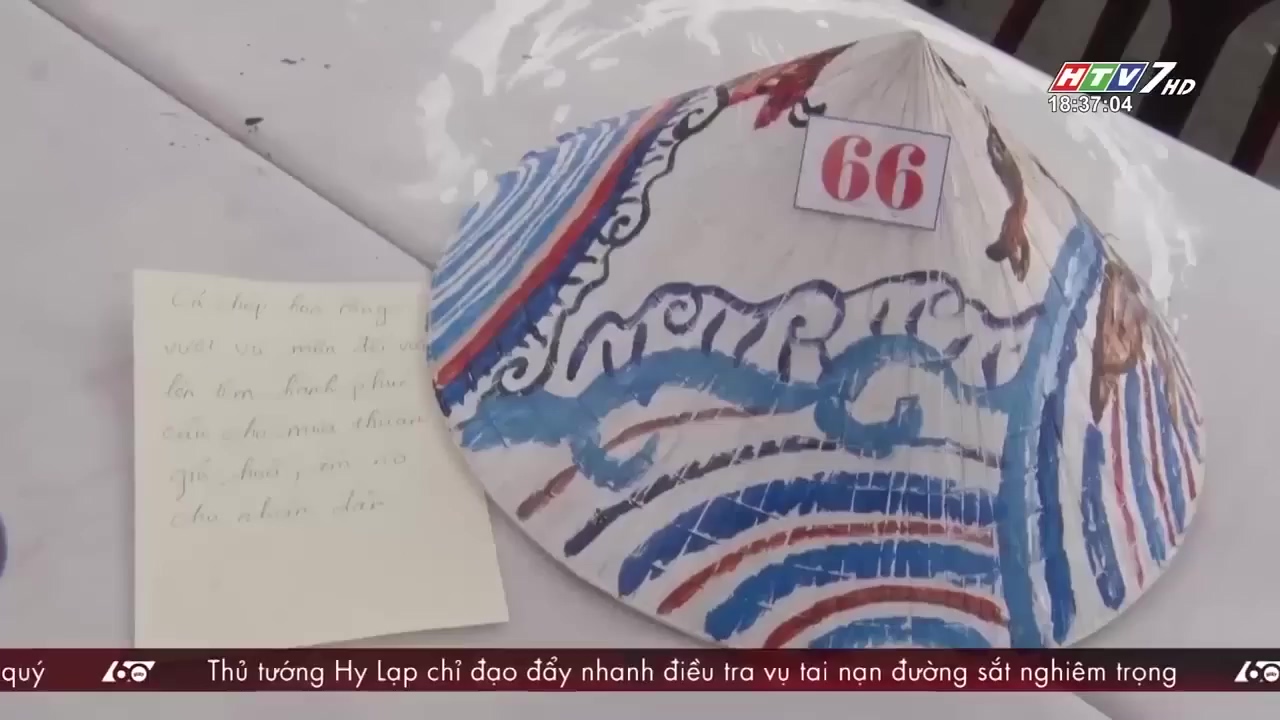 HTV7 HD
18:37:04
66
Cá chép hoá rồng
vượt vũ môn
lên tìm hạnh phúc
cầu cho mưa thuận
gió hoà, ấm no
cho nhân dân
quý 60 giây Thủ tướng Hy Lạp chỉ đạo đẩy nhanh điều tra vụ tai nạn đường sắt nghiêm trọng 60